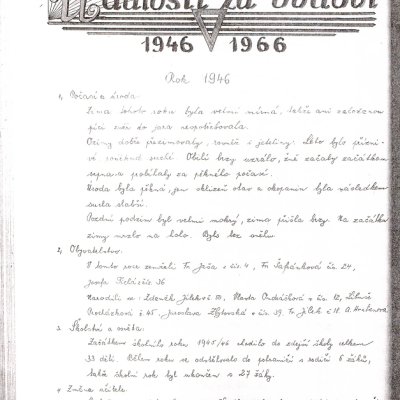 Události za období
1946 1966
Rok 1946
1, Počasí a úroda:
Zima tohoto roku byla velmi mírná, takže ani
píci zvěř do jara nepotřebovala.
Oziny dobře přezimovaly, rovněž i jeteliny. Léto bylo přízni-
vé, suché. Obilí brzy uzrálo, žně začaly začátkem
srpna a probíhaly za pěkného počasí.
Úroda byla pěkná, jen sklizeň otav a okopanin byla následkem
sucha slabší.
Pozdní podzim byl velmi mokrý, zima přišla brzy. Na začátku
zimy mrzlo na holo. Bylo bez sněhu.
2, Obyvatelstvo:
V tomto roce zemřeli Fr. Ješa č. 4, Fr. Šafránková čp. 24,
36
Narodili se: Zdeněk Jílek 50, Vlasta Ondráčková č. 12, Libuše
č. 45, Jaroslava č. 39, Fr. Jílek č. 11
3, Školství a osvěta:
Začátkem školního roku 1945/46 chodilo do zdejší školy celkem
33 dětí. Během roku se odstěhovalo do pohraničí s rodiči 6 žáků,
takže školní rok byl ukončen s 27 žáky.
4, Změna učitele: